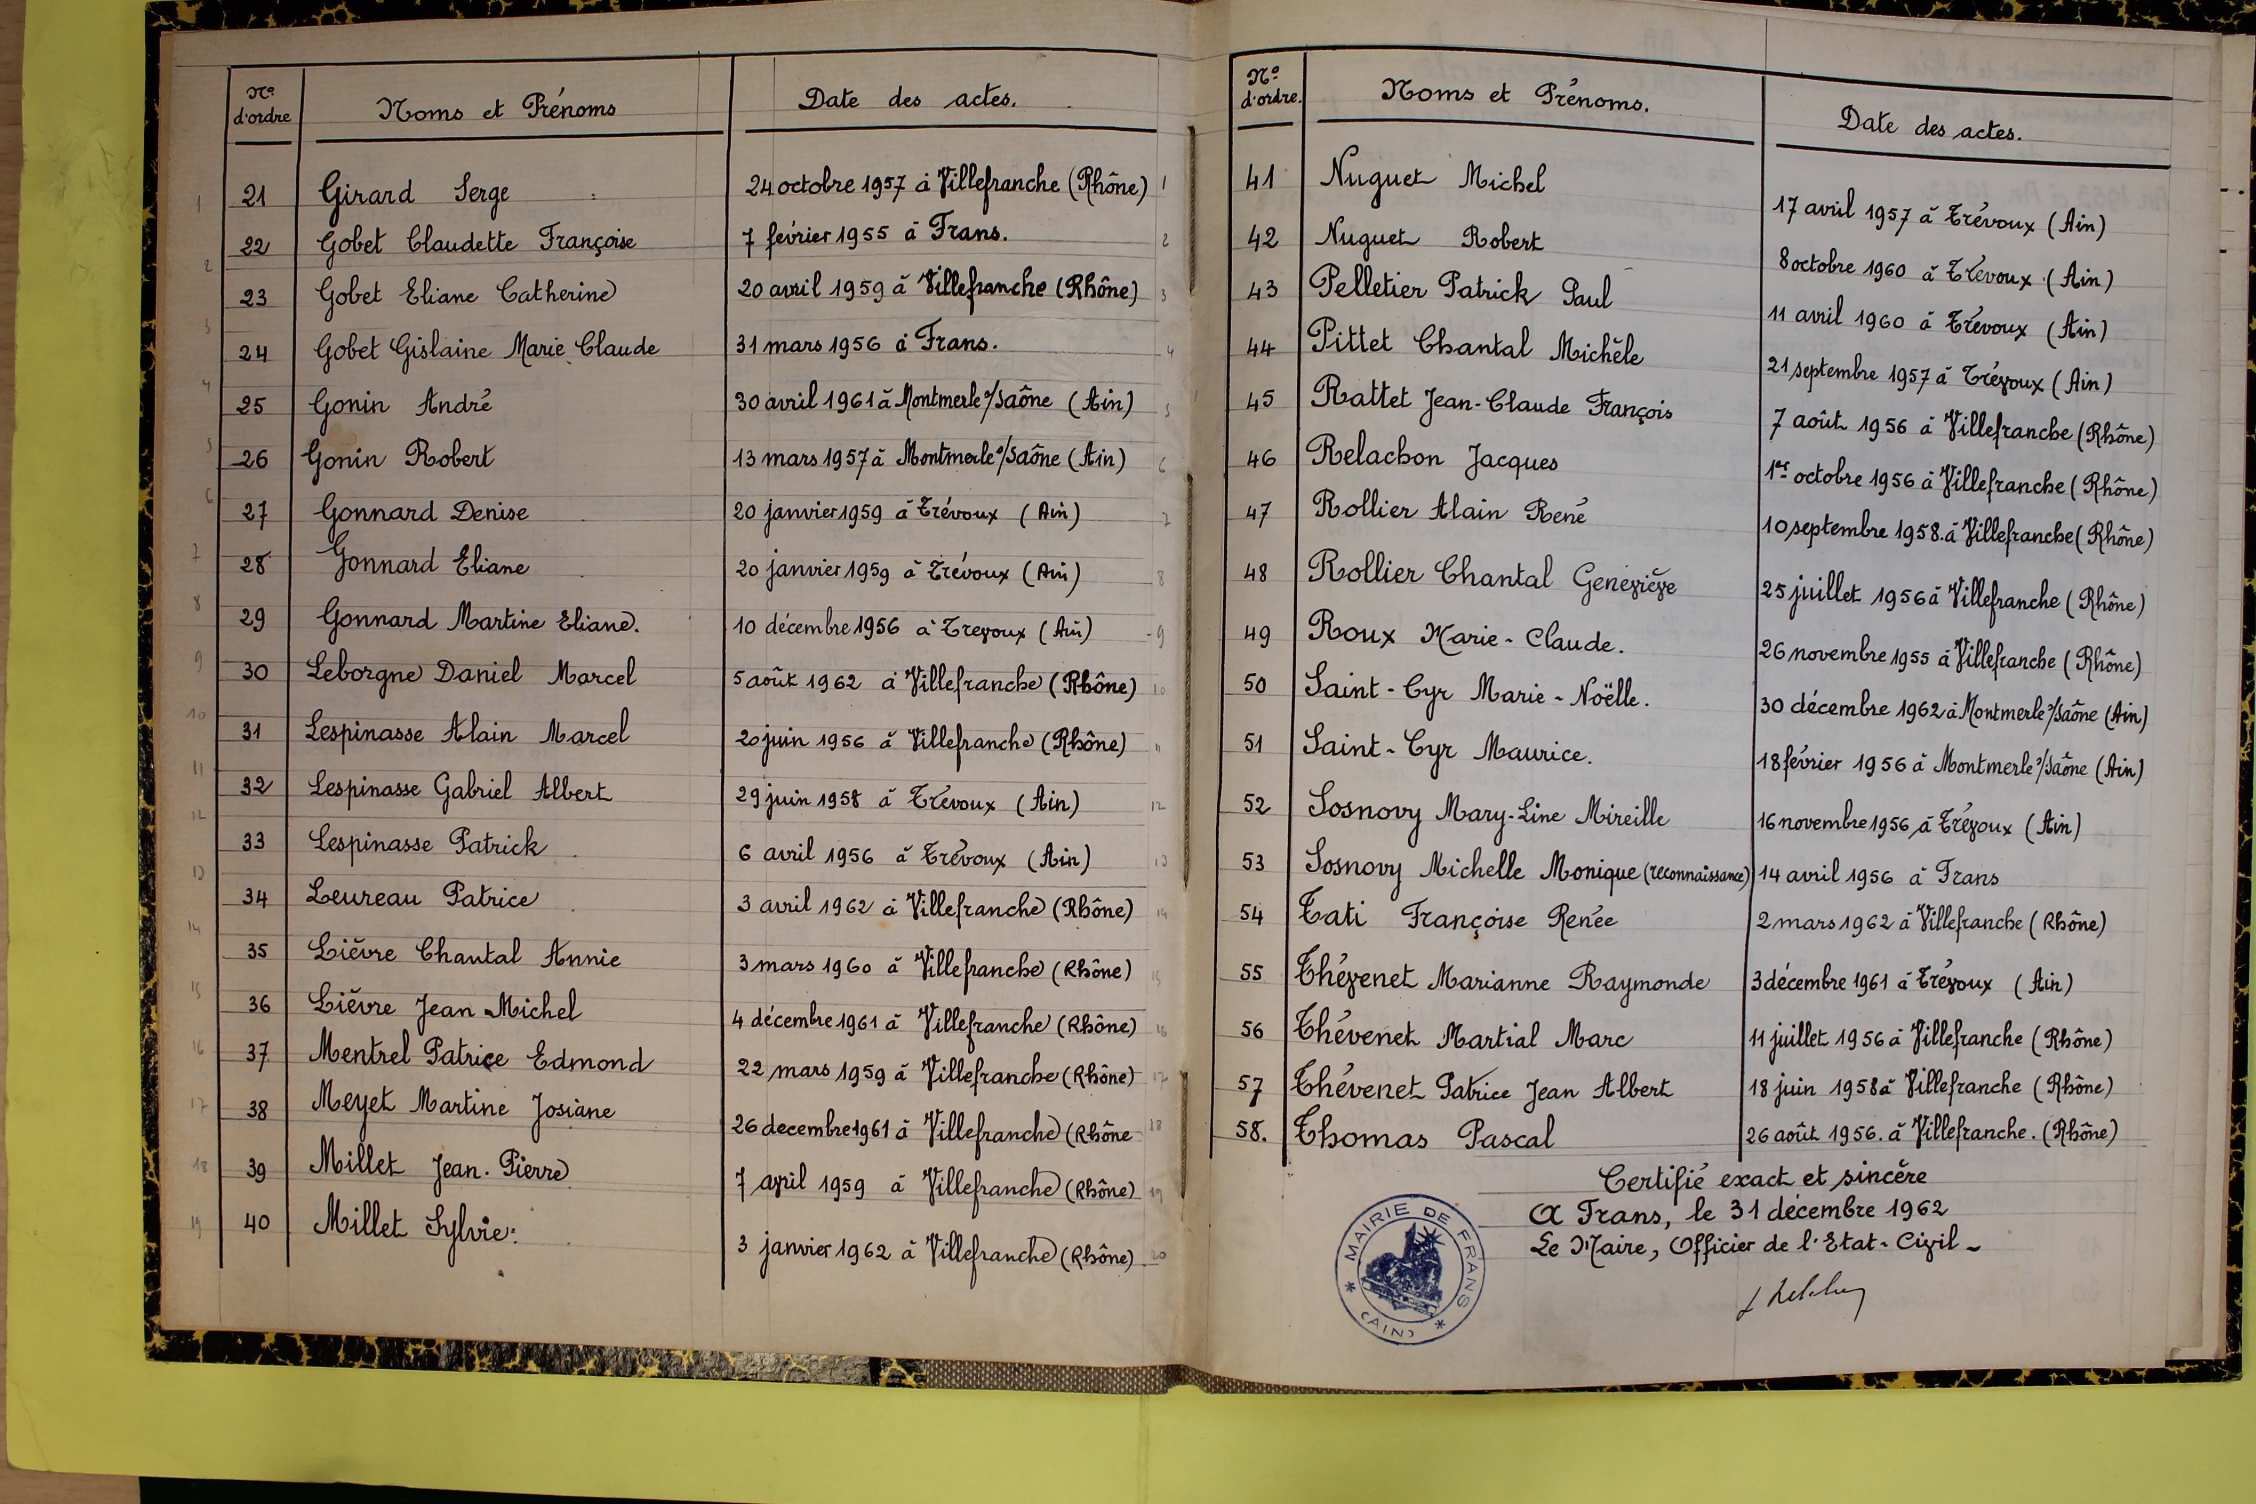 Nº d'ordre Noms et Prénoms Date des actes.
21 Girard Serge 24 octobre 1957 à Villefranche (Rhône) 1
22 Gobet Claudette Françoise 7 février 1955 à Frans. 2
23 Gobet Eliane Catherine 20 avril 1959 à Villefranche (Rhône) 3
24 Gobet Gislaine Marie Claude 31 mars 1956 à Frans. 4
25 Gonin André 30 avril 1961 à Montmerle s/Saône (Ain) 5
26 Gonin Robert 13 mars 1957 à Montmerle s/Saône (Ain) 6
27 Gonnard Denise 20 janvier 1959 à Trévoux (Ain) 7
28 Gonnard Eliane 20 janvier 1959 à Trévoux (Ain) 8
29 Gonnard Martine Eliane. 10 décembre 1956 à Trevoux (Ain) 9
30 Leborgne Daniel Marcel 5 août 1962 à Villefranche (Rhône) 10
31 Lespinasse Alain Marcel 20 juin 1956 à Villefranche (Rhône) 11
32 Lespinasse Gabriel Albert 29 juin 1958 à Trévoux (Ain) 12
33 Lespinasse Patrick 6 avril 1956 à Trévoux (Ain) 13
34 Leureau Patrice 3 avril 1962 à Villefranche (Rhône) 14
35 Lièvre Chantal Annie 3 mars 1960 à Villefranche (Rhône) 15
36 Lièvre Jean Michel 4 décembre 1961 à Villefranche (Rhône) 16
37 Mentrel Patrice Edmond 22 mars 1959 à Villefranche (Rhône) 17
38 Meyet Martine Josiane 26 decembre 1961 à Villefranche (Rhône 18
39 Millet Jean-Pierre 7 avril 1959 à Villefranche (Rhône) 19
40 Millet Sylvie. 3 janvier 1962 à Villefranche (Rhône) 20
Nº d'ordre. Noms et Prénoms. Date des actes.
41 Nuguet Michel 17 avril 1957 à Trévoux (Ain)
42 Nuguet Robert 8 octobre 1960 à Trévoux (Ain)
43 Pelletier Patrick Paul 11 avril 1960 à Trévoux (Ain)
44 Pittet Chantal Michèle 21 septembre 1957 à Trévoux (Ain)
45 Rattet Jean-Claude François 7 août 1956 à Villefranche (Rhône)
46 Relachon Jacques 1er octobre 1956 à Villefranche (Rhône)
47 Rollier Alain René 10 septembre 1958. à Villefranche (Rhône)
48 Rollier Chantal Geneviève 25 juillet 1956 à Villefranche (Rhône)
49 Roux Marie-Claude. 26 novembre 1955 à Villefranche (Rhône)
50 Saint-Cyr Marie-Noëlle. 30 décembre 1962 à Montmerle s/Saône (Ain)
51 Saint-Cyr Maurice. 18 février 1956 à Montmerle s/Saône (Ain)
52 Sosnovy Mary-Line Mireille 16 novembre 1956 à Trévoux (Ain)
53 Sosnovy Michelle Monique (reconnaissance) 14 avril 1956 à Frans
54 Tati Françoise Renée 2 mars 1962 à Villefranche (Rhône)
55 Thévenet Marianne Raymonde 3 décembre 1961 à Trévoux (Ain)
56 Thévenet Martial Marc 11 juillet 1956 à Villefranche (Rhône)
57 Thévenet Patrice Jean Albert 18 juin 1958 à Villefranche (Rhône)
58. Thomas Pascal 26 août 1956. à Villefranche. (Rhône)
Certifié exact et sincère
A Frans, le 31 décembre 1962
Le Maire, Officier de l'Etat-Civil -
MAIRIE DE FRANS
(AIN)